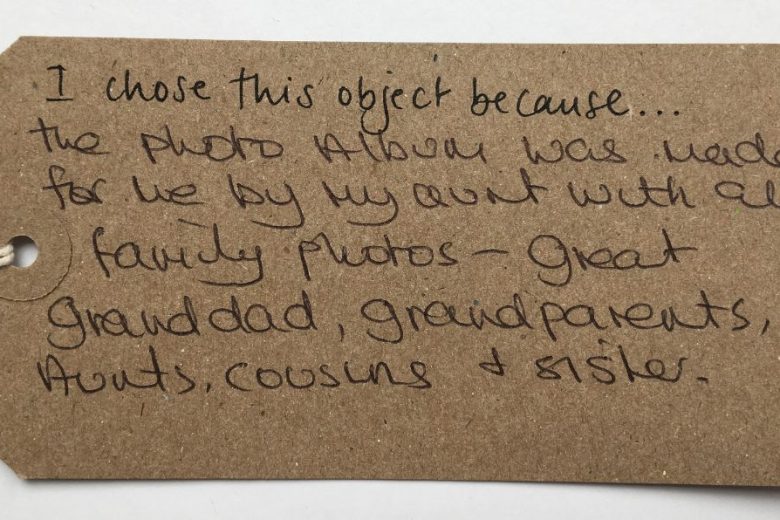 I chose this object because...
the photo Album was made
for me by my aunt with all
family photos – great
granddad, grandparents,
Aunts, cousins & sister.